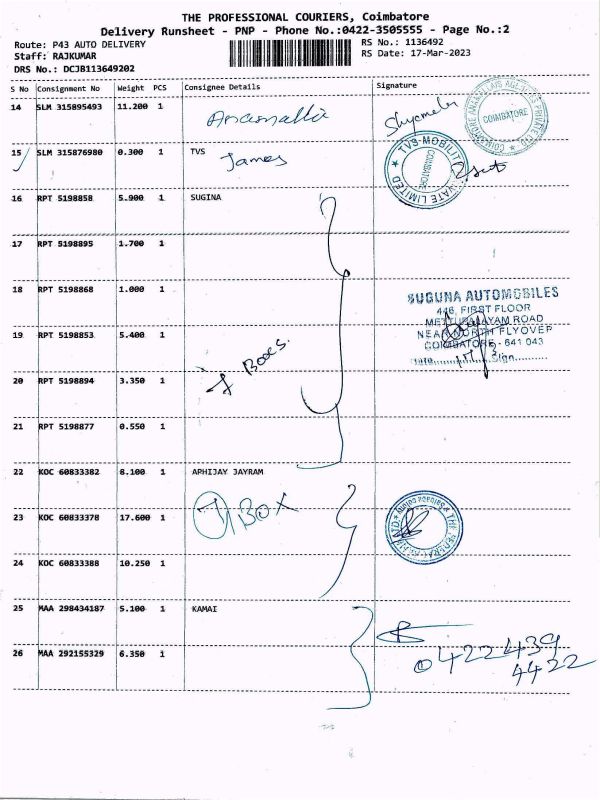 THE PROFESSIONAL COURIERS, Coimbatore
Delivery Runsheet - PNP - Phone No.:0422-3505555 - Page No.:2
Route: P43 AUTO DELIVERY
RS No.: 1136492
Staff: RAJKUMAR
RS Date: 17-Mar-2023
DRS No.: DCJB113649202
S No Consignment No Weight PCS Consignee Details Signature
14 SLM 315895493 11.200 1
COIMBATORE
15 SLM 315876980 0.300 1 TVS
James
COIMBATORE
16 RPT 5198858 5.900 1 SUGINA
17 RPT 5198895 1.700 1
18 RPT 5198868 1.000 1
SUGUNA AUTOMOBILES
446, FIRST FLOOR
METTUPALAYAM ROAD
NEAR NORTH FLYOVER
COIMBATORE - 641 043
Date Sign
19 RPT 5198853 5.400 1
Boxes.
20 RPT 5198894 3.350 1
21 RPT 5198877 0.550 1
22 KOC 60833382 8.100 1 APHIJAY JAYRAM
23 KOC 60833378 17.600 1
BOX
24 KOC 60833388 10.250 1
25 MAA 298434187 5.100 1 KAMAI
26 MAA 292155329 6.350 1
0422439
4422